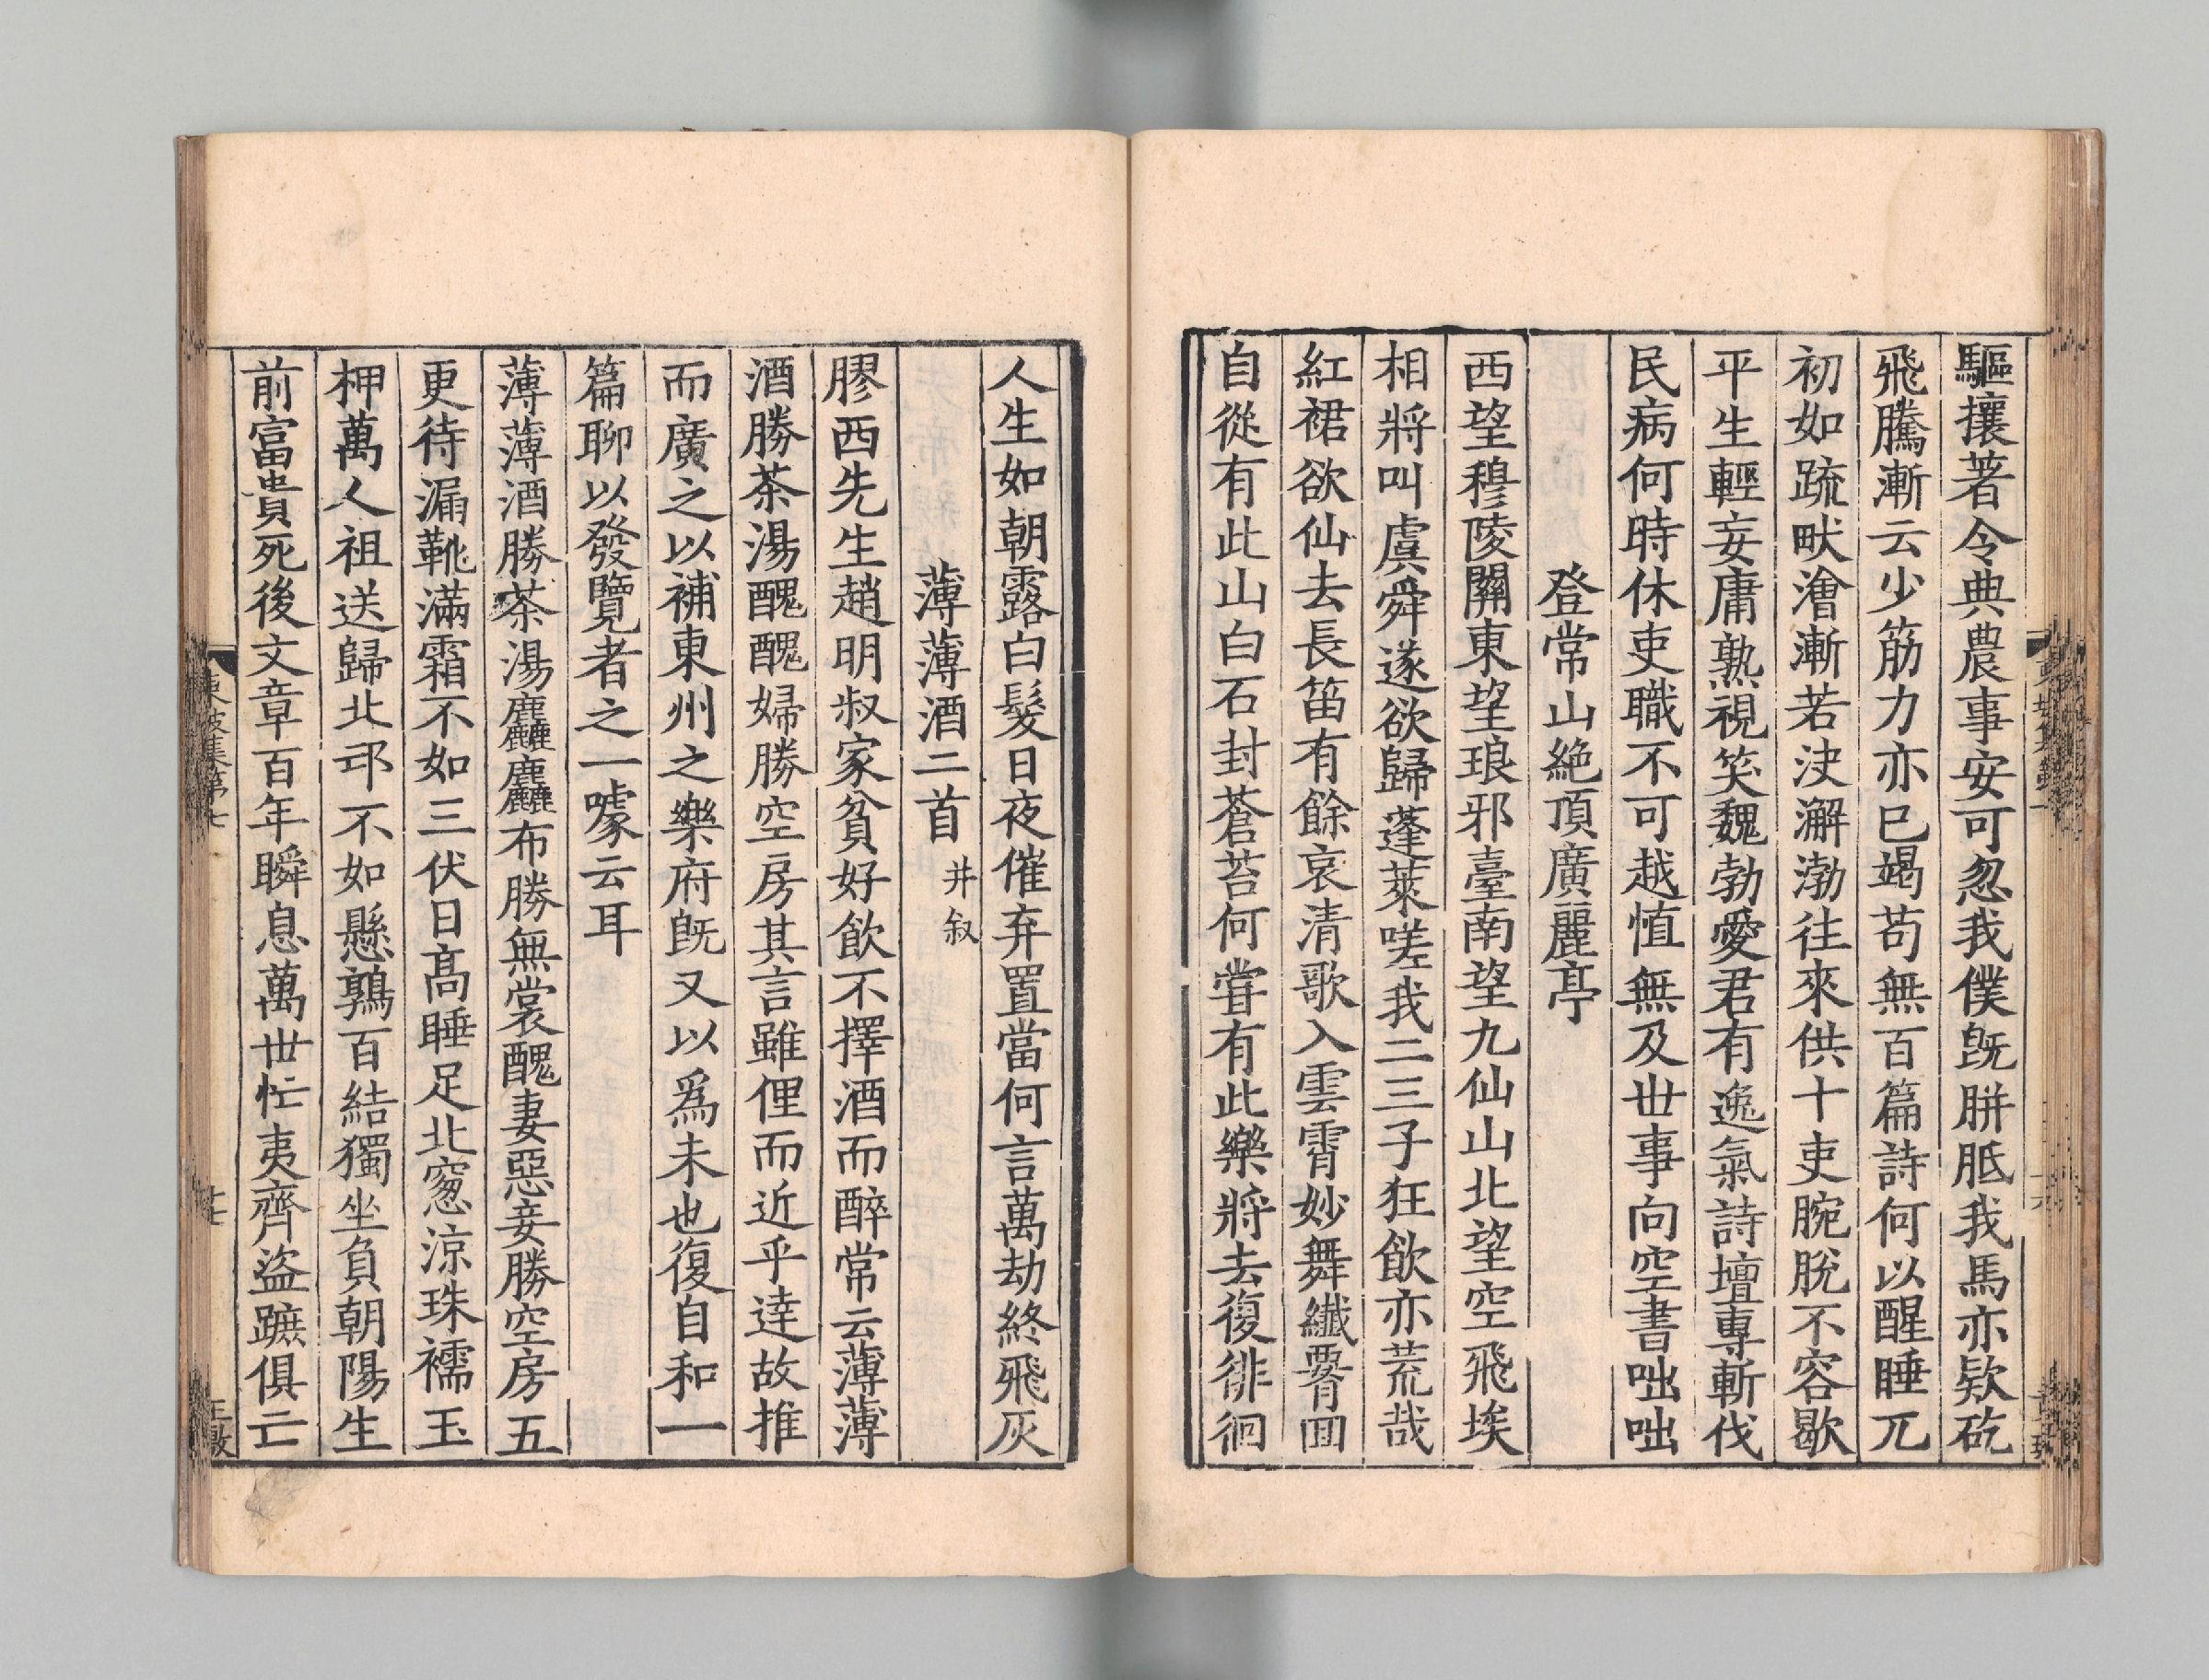 驅攘著令典農事安可忽我僕旣胼胝我馬亦款矻
飛騰漸云少筋力亦已竭苟無百篇詩何以醒睡兀
初如疏畎澮漸若決澥渤往來供十吏腕脫不容歇
平生輕妄庸熟視笑魏勃愛君有逸氣詩壇專斬伐
民病何時休吏職不可越愼無及世事向空書咄咄
登常山絶頂廣麗亭
西望穆陵關東望琅邪臺南望九仙山北望空飛埃
相將叫虞舜遂欲歸蓬萊嗟我二三子狂飲亦荒哉
紅裙欲仙去長笛有餘哀清歌入雲霄妙舞纖𦝫回
自從有此山白石封蒼苔何甞有此樂將去復徘徊
人生如朝露白髮日夜催弃置當何言萬劫終飛灰
薄薄酒二首 并叙
膠西先生趙明叔家貧好飲不擇酒而醉常云薄薄
酒勝茶湯醜醜婦勝空房其言雖俚而近乎達故推
而廣之以補東州之樂府旣又以爲未也復自和一
篇聊以發覽者之一噱云耳
薄薄酒勝茶湯麤麤布勝無裳醜妻惡妾勝空房五
更待漏靴滿霜不如三伏日高睡足北窻涼珠襦玉
柙萬人祖送歸北邙不如懸鶉百結獨坐負朝陽生
前富貴死後文章百年瞬息萬世忙夷齊盜蹠俱亡
東坡集第七